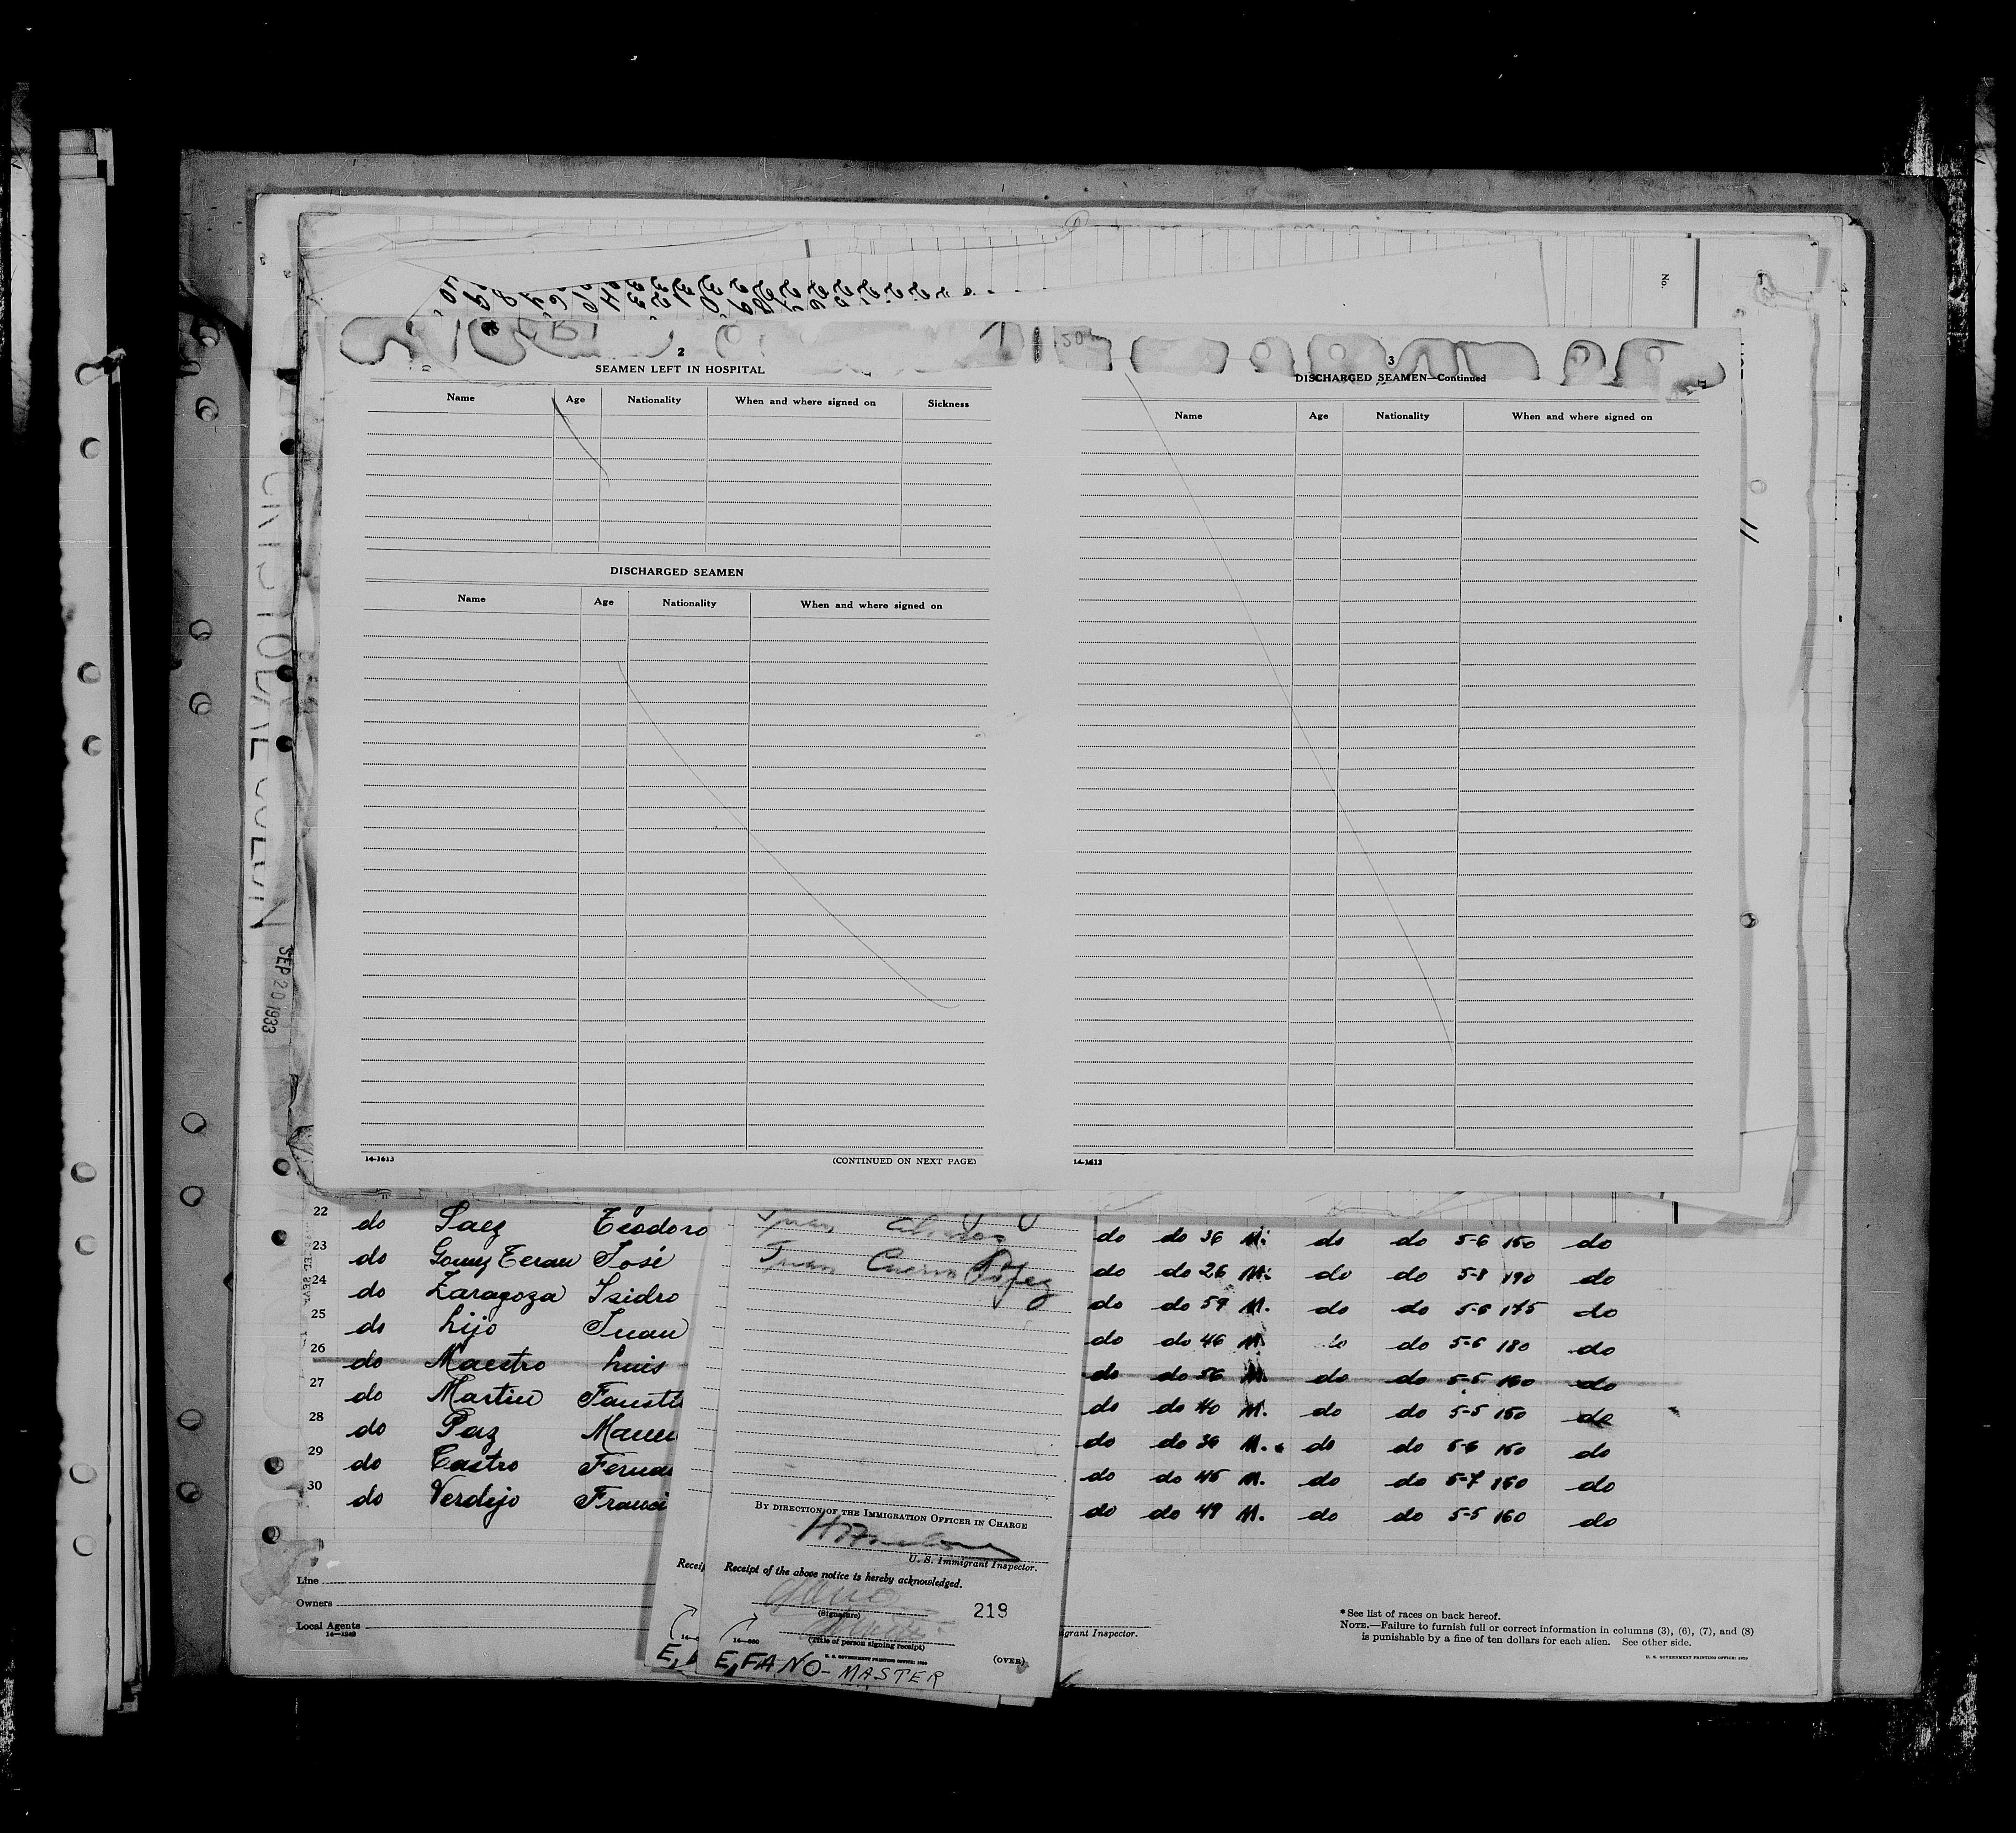 No.
2
SEAMEN LEFT IN HOSPITAL
Name Age Nationality When and where signed on Sickness
DISCHARGED SEAMEN
Name Age Nationality When and where signed on
14-1613
(CONTINUED ON NEXT PAGE)
3
DISCHARGED SEAMEN—Continued
Name Age Nationality When and where signed on
14-1613
11
SEP 20 1933
22 do Saez Teodoro do do 36 M. do do 5-6 150 do
23 do Gomez Teran José do do 26 M. do do 5-8 190 do
24 do Zaragoza Isidro do do 59 M. do do 5-6 175 do
25 do Lijo Juan do do 46 M. do do 5-6 180 do
26 do Maestro Luis do do 56 M. do do 5-5 160 do
27 do Martin Fausti do do 40 M. do do 5-5 150 do
28 do Paz Manu do do 36 M. do do 5-6 150 do
29 do Castro Ferna do do 45 M. do do 5-7 160 do
30 do Verdejo Franci do do 49 M. do do 5-5 160 do
Juan
Juan Cuervo López
BY DIRECTION OF THE IMMIGRATION OFFICER IN CHARGE
U. S. Immigrant Inspector.
Receipt of the above notice is hereby acknowledged.
(Signature)
219
(Title of person signing receipt)
14—660
U. S. GOVERNMENT PRINTING OFFICE: 1930
(OVER)
E. FANO - MASTER
Receip
14—
E.
Line
Owners
Local Agents
14—1240
grant Inspector.
*See list of races on back hereof.
NOTE.—Failure to furnish full or correct information in columns (3), (6), (7), and (8)
is punishable by a fine of ten dollars for each alien. See other side.
U. S. GOVERNMENT PRINTING OFFICE: 1930